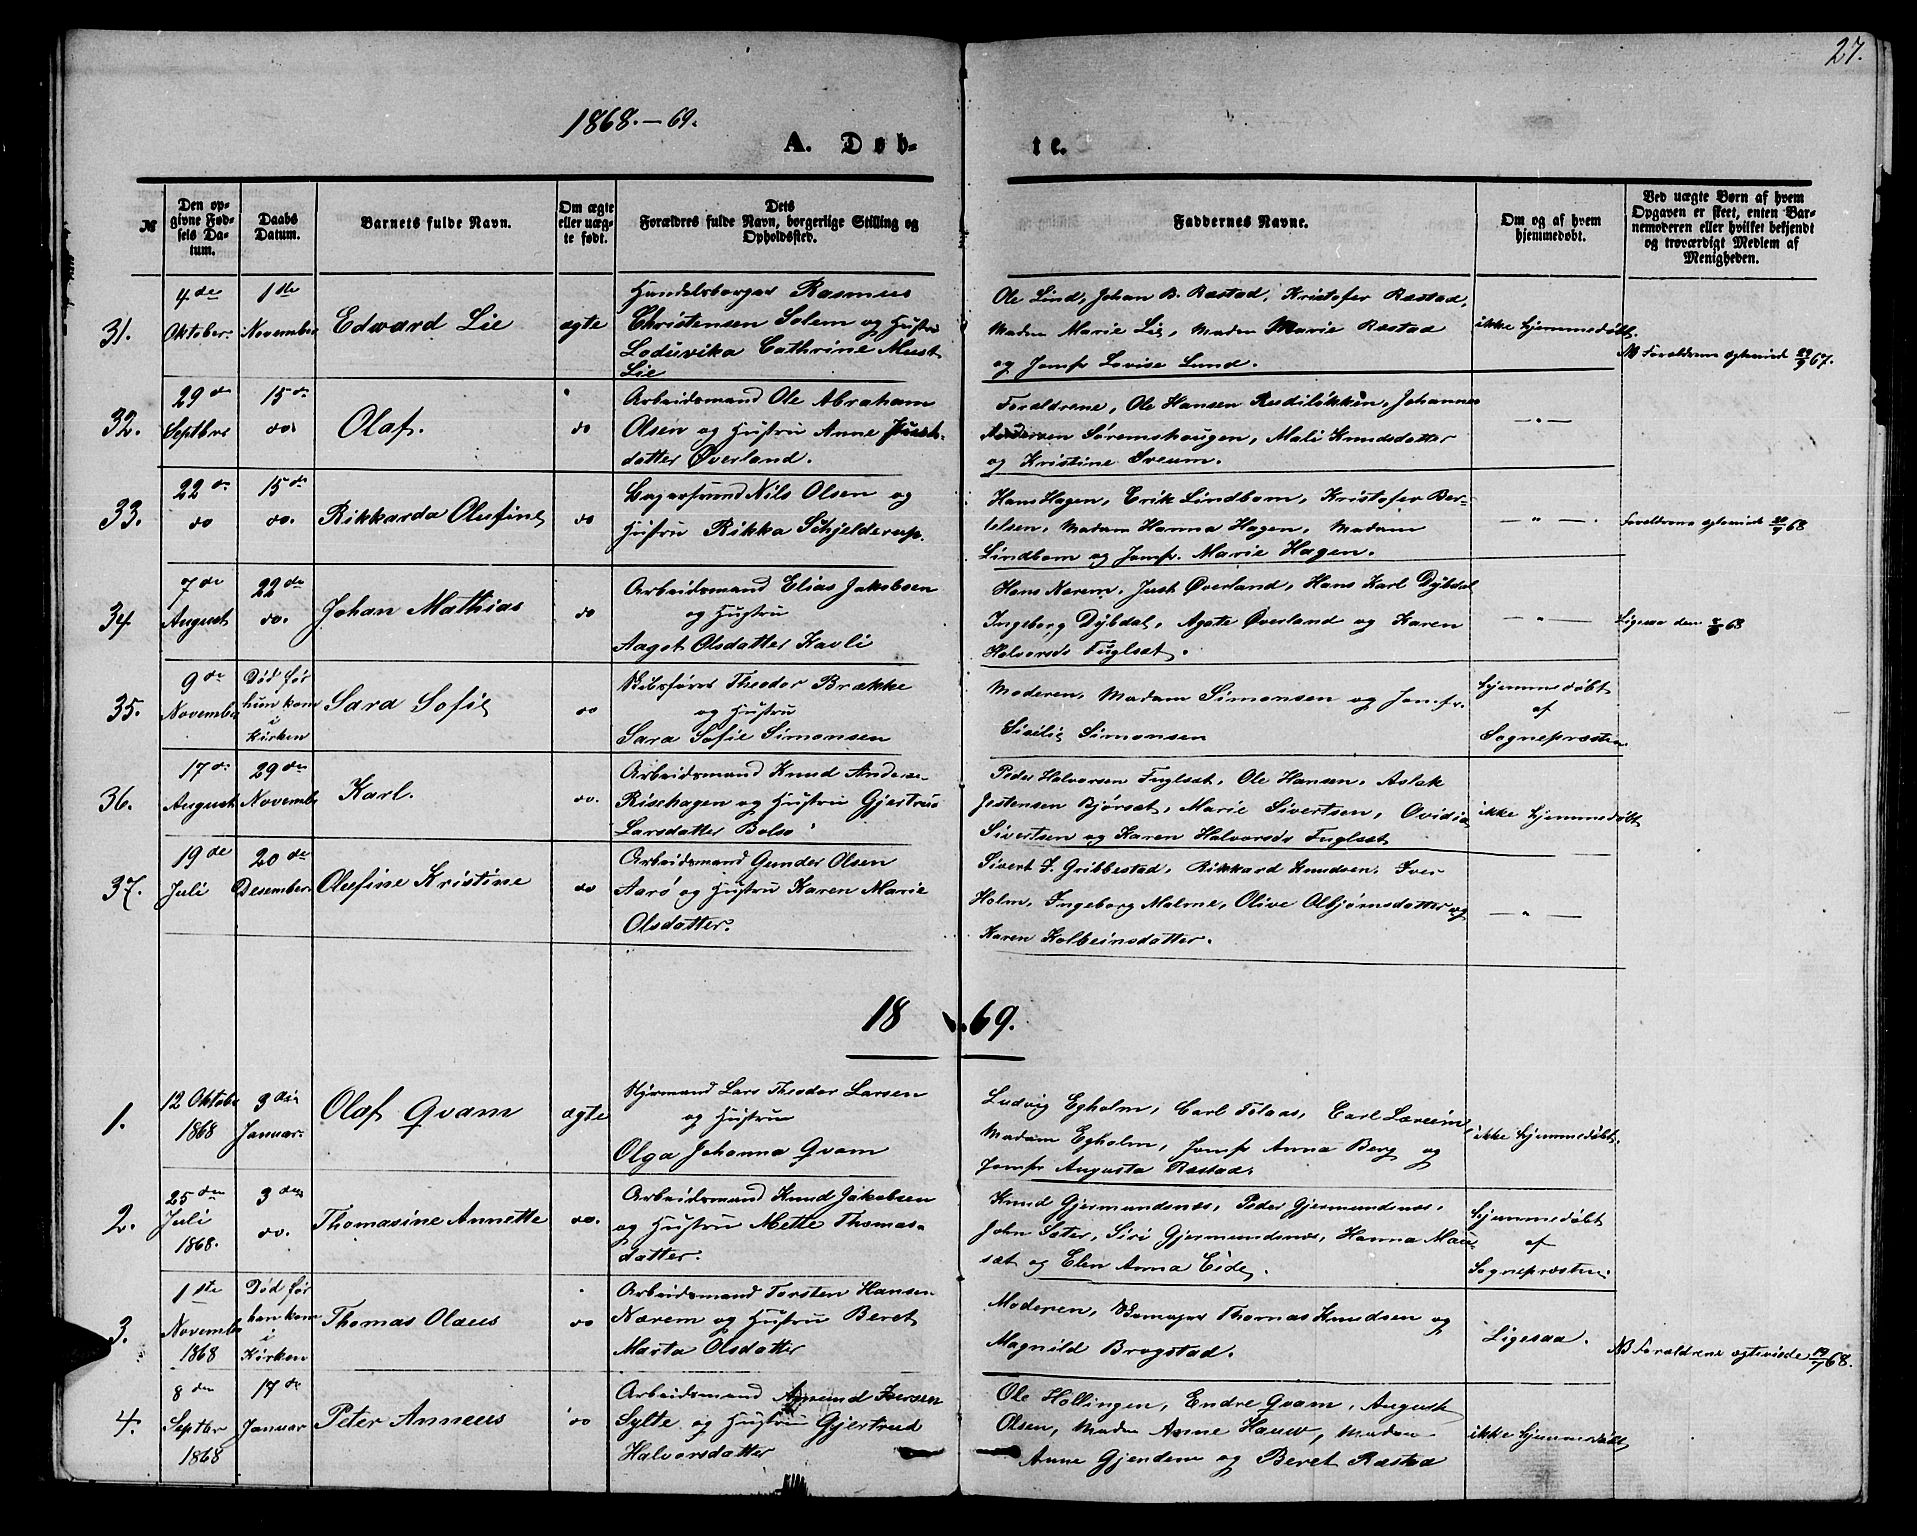 27.
1868.-69.
A. Døb-
te.
№
Den op-
givne Fød-
sels Da-
tum.
Daabs
Datum.
Barnets fulde Navn.
Om ægte
eller uæg-
te født.
Dets
Forældres fulde Navn, borgerlige Stilling og
Opholdssted.
Faddernes Navne.
Om og af hvem
hjemmedøbt.
Ved uægte Børn af hvem
Opgaven er skeet, enten Bar-
nemoderen eller hvilket bekjendt
og troværdigt Medlem af
Menigheden.
31.
4de
Oktober.
1ste
November
Edward Lie
ægte
Handelsborger Rasmus
Christensen Solem og Hustru
Loduvika Cathrine Must
Lie
Ole Lind, Johan B. Ræstad, Kristofer Ræstad,
Madm Marie Lie, Madm Marie Ræstad
og Jomfr Lovise Lund.
ikke hjemmedøbt.
NB Forældrene ægteviede 29/9 67.
32.
29de
Septbr
15de
do.
Olaf.
do
Arbeidsmand Ole Abraham
Olsen og Hustru Anne
datter Øverland.
Forældrene, Ole Hansen Rudiløkken, Johannes
Andersen Søremshaugen, Mali Knudsdatter
og Kristine Sveum.
— " —
33.
22de
do
15de
do.
Rikkarda Olufine
do
Bagersvend Nils Olsen og
Hustru Rikka Schjelderup.
Hans Hagen, Erik Lindbom, Kristofer Ber-
telsen, Madam Hanna Hagen, Madam
Lindbom og Jomfr. Marie Hagen.
— " —.
Forældrene ægteviede 68
34
7de
August
22de
do.
Johan Mathias
do
Arbeidsmand Elias Jakobsen
og Hustru
Aagot Olsdatter Kavli
Hans Nærem, Just Øverland, Hans Karl Dybdal
Ingeborg Dybdal, Agate Øverland og Karen
Halvorsdr Fuglset.
— " —
Ligesaa den 68
35.
9de
November
Død før
hun kom
i
Kirken
Sara Sofie
do
Theodor Brække
og Hustru
Sara Sofie Simonsen
Moderen, Madam Simonsen og Jomfr.
Sisilie Simonsen
hjemmedøbt
af
Sognepræsten
36.
17de
August
29de
Novembr
Karl.
do.
Arbeidsmand Knud Anders.
Risehagen og Hustru Gjertrud
Larsdatter Bolsø
Peder Halvorsen Fuglset, Ole Hansen, Aslak
Jostensen Bjørset, Marie Sivertsen, Ovidia
Sivertsen og Karen Halvorsdr Fuglset
ikke hjemmedøbt
37.
19de
Juli
20de
Desember
Olufine Kristine
do
Arbeidsmand Gunder Olsen
Aarø og Hustru Karen Marie
Olsdatter.
Sivert J. Gribbestad, Rikkard Knudsen, Iver
Holm, Ingeborg Malme, Olive Asbjørnsdatter og
Karen Kolbeinsdatter.
— " —
1869.
1.
12 Oktobr
1868
3die
Januar.
Olaf Qvam
ægte
Styrmand Lars Theodor Larsen
og Hustru
Olga Johanna Qvam
Ludvig Egholm, Carl Carl
Madam Egholm, Jomfr Anna Berg og
Jomfr Augusta Ræstad.
ikke hjemmedøbt.
2.
25de
Juli
1868.
3die
do.
Thomasine Annette
do.
Arbeidsmand Knud Jakobsen
og Hustru Mette Thomas-
datter.
Knud Gjermundsnes, Peder Gjermundsnes,
John Sæter, Siri Gjermundsnes, Hanna Mau-
sæt og Elen Anna Eide.
hjemmedøbt
af
Sognepræsten
3.
1ste
Novembr
1868
Død før
han kom
i
Kirken
Thomas Olaus
do
Arbeidsmand Torsten Hansen
Nærem og Hustru Beret
Marta Olsdatter
Moderen, Thomas Knudsen og
Magnild Brogstad.
Ligesaa.
NB Forældrene ægteviede 19/7 68.
4.
8de
Septbr
1868
17de
Januar
Peter Anneus
do
Arbeidsmand Amund Iversen
Sylte og Hustru Gjertrud
Halvorsdatter
Ole Hollingen, Endre Qvam, August
Olsen, Madm Anne Hauw, Madm
Anne Gjendem og Beret Ræstad
ikke hjemmedøbt